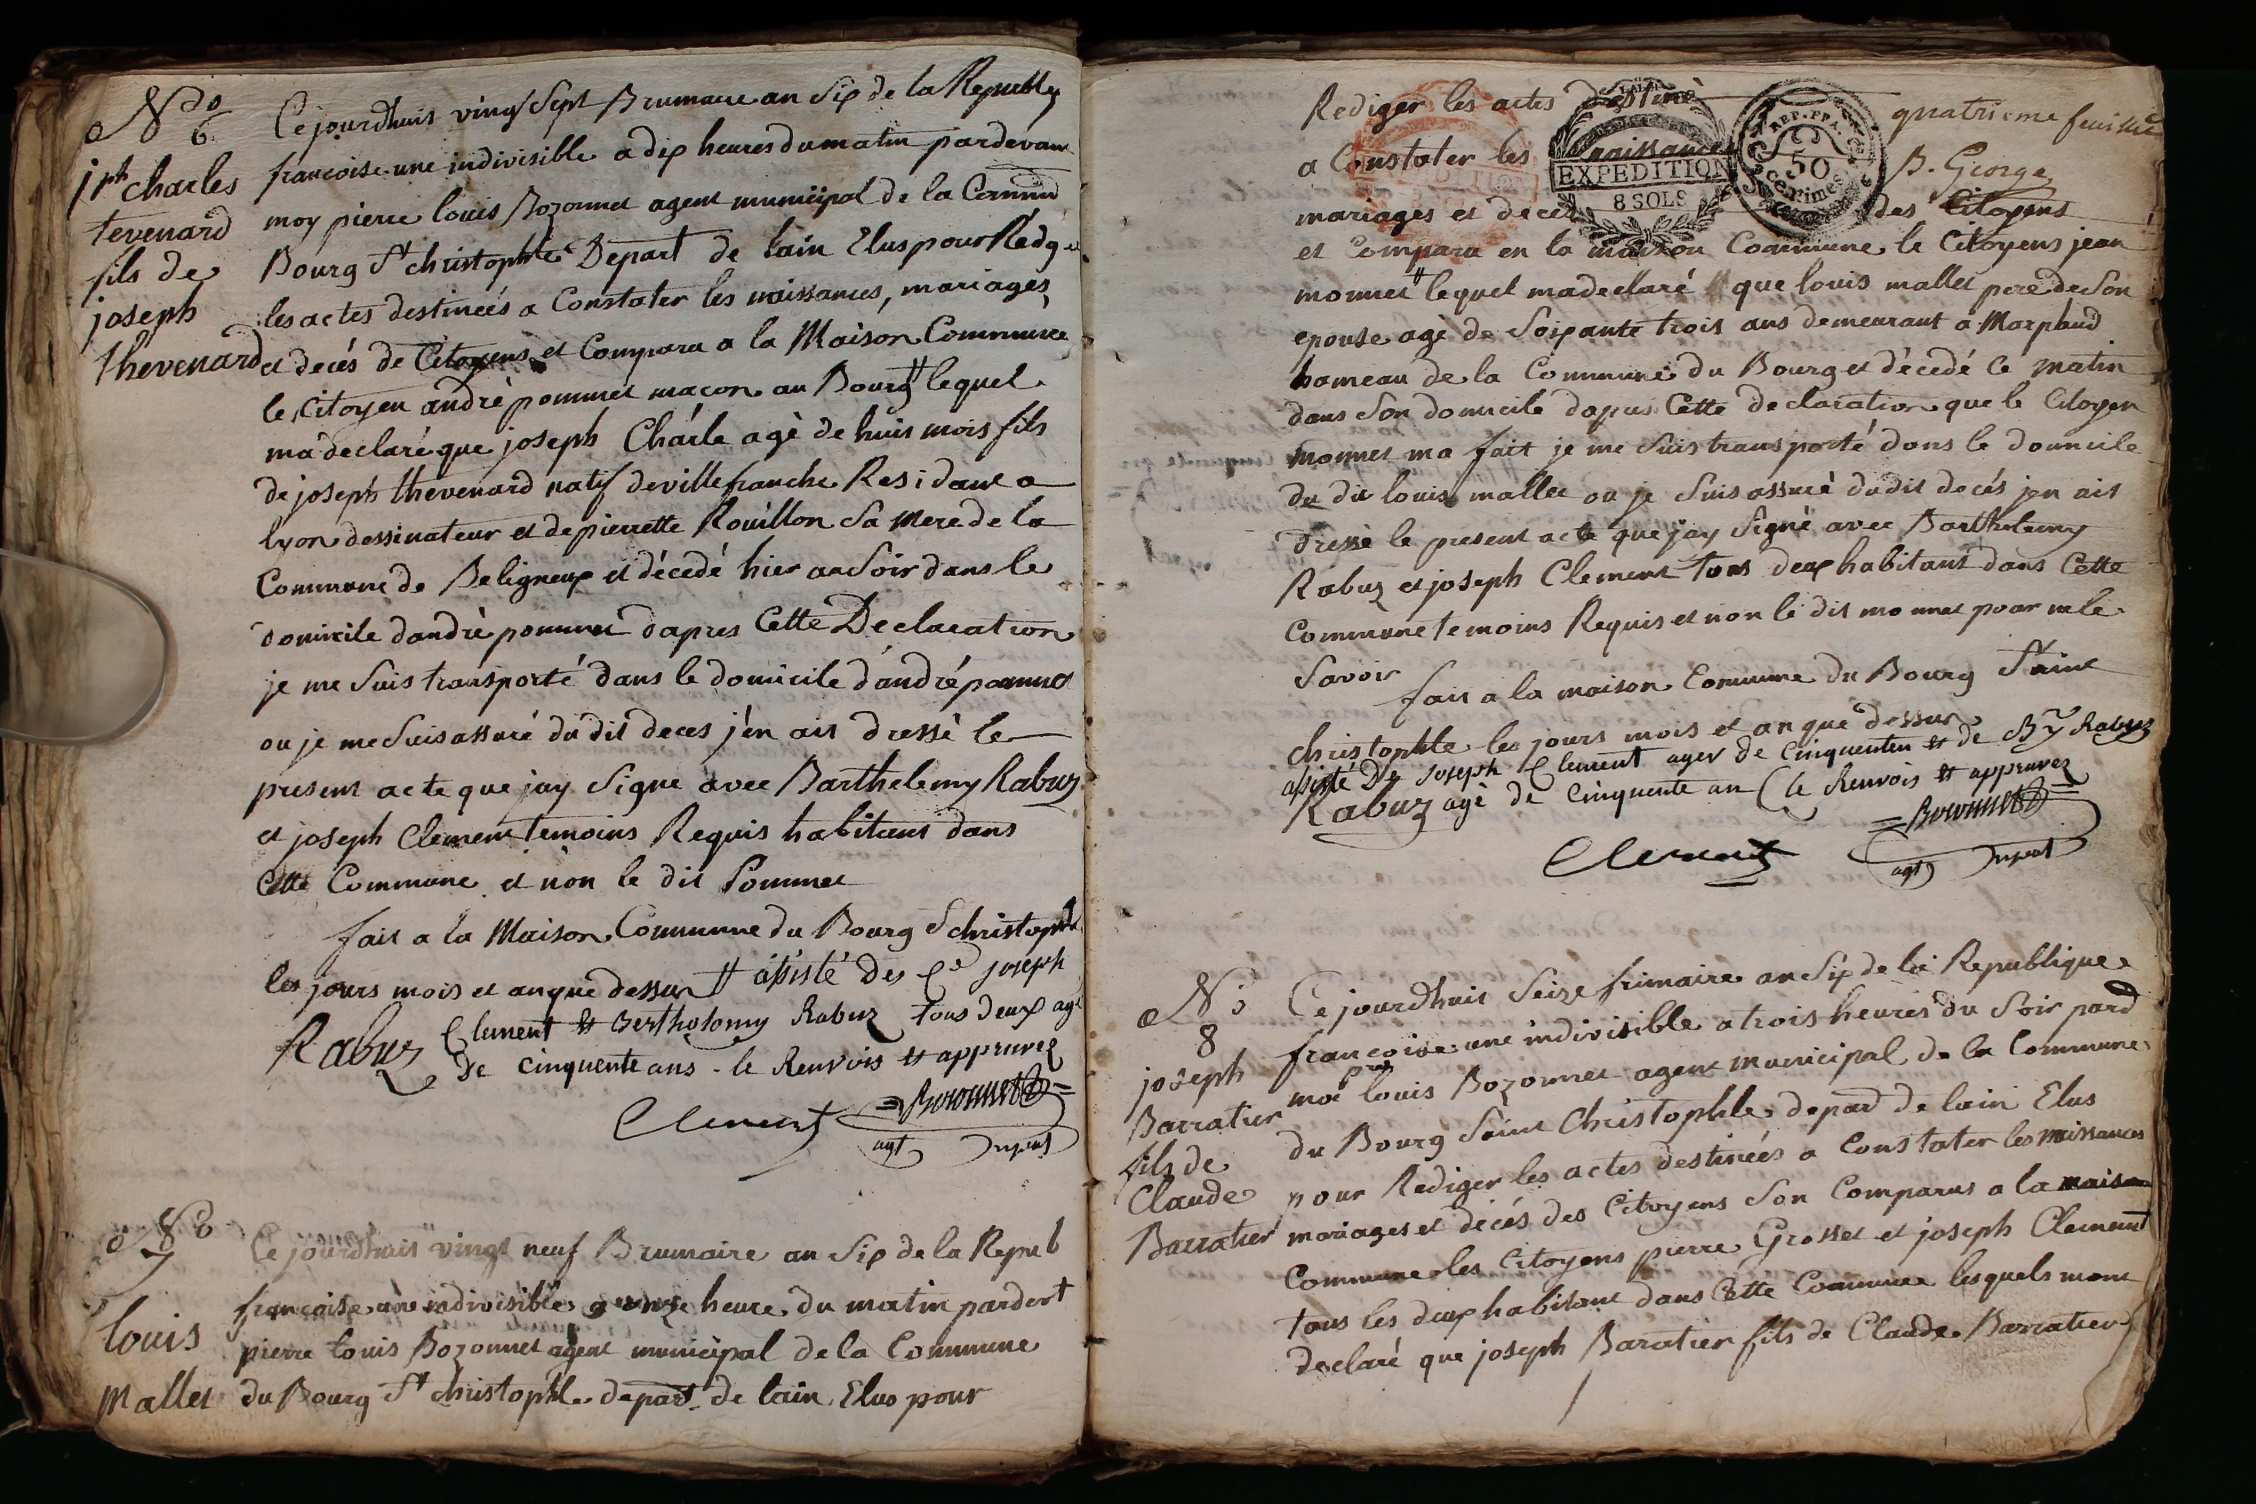 No 6
jph charles
tevenard
fils de
joseph
thevenard
Ce jourdhuis vingt Sept Brumaire an Six de la Republiq
francoise une indivisible a dix heures du matin pardevant
moy pierre louis Bozonnet agent municipal de la Commun
Bourg St christophle Depart de lain Elus pour Redig
les actes destineés a Constater les naissances, mariages
et decés de Citoyens et Compara a la Maison Commune
le Citoyen andré pommet macon au Bourg # lequel
ma declaré que joseph Charle agè de huit mois fils
de joseph thevenard natif de villefranche Residant a
lyon dessinateur et de pierrette Rouillon Sa Mere de la
Commune de Beligneux et décedé hier au Soir dans le
domicile dandré pommet dapres Cette Declaration
je me Suis transporté dans le domicile d'andré pommet
ou je me Suis assuré du dit deces j'en ais dressé le
present acte que jay Signe avec Barthelemy Rabuz
et joseph Clement temoins Requis habitans dans
Cette Commune et nòn le dit Pommet
fait a la Maison Commune du Bourg St christophle
les jours mois et an que dessur # assisté Des Ce joseph
Clement et Bertholomy Rabuz tous deux agé
Rabuz
de cinquente ans - le Renvois et appruvez
= Bozonnet =
Clement
agt
No 7
louis
Mallet
Ce jourdhuis vingt neuf Brumaire an Six de la Repub
francoise une indivisible a onze heure du matin pardevt
pierre louis Bozonnet agent municipal de la Commune
du Bourg St christophle depart de lain Elus pour
Rediger les actes destiné
quatrieme feuillet
a Constater les naissance
B. George
EXPEDITION
8 SOLS
REP. FRA.
50
centimes
mariages et decés des Citoyens
et Compara en la maison Commune le Citoyens jean
monnet # lequel ma declaré que louis mallet pere de Son
epouse agè de Soixante trois ans demeurant a Marphud
hameau de la Commune du Bourg et décedé Ce matin
dans Son domicile dapres Cette declaration que le Citoyen
monnet ma fait je me Suis transporté dans le domicile
du dit louis mallet ou je Suis assuré du dit decés jen ais
dressé le present acte que jay Signé avec Barthelemy
Rabuz et joseph Clement tous deux habitant dans Cette
Commune temoins Requis et non le dit monnet pour ne le
Savoir
fait a la maison Commune du Bourg Saint
christophle les jours mois et an que dessur
assisté De Joseph Clement ager de Cinquenten et de By Rabuz
agè de Cinquente an ( le Renvois et appruvez
Rabuz
= Bozonnet =
Clement
agt
No 8
joseph
Barratier
fils de
Claude
Barratier
Ce jourdhuit Seize frimaire an Six de la Republique
francoise une indivisible a trois heures du Soir pard
moi pre louis Bozonnet agent municipal de la Commune
du Bourg Saint Christophle depard de lain Elus
pour Rediger les actes destineés a Constater les naissances
mariages et décés des Citoyens Son Comparus a la maison
Commune les Citoyens pierre Grosset et joseph Clement
tous les deux habitant dans Cette Commune lesquels mont
declaré que joseph Baratier fils de Claude Barratier